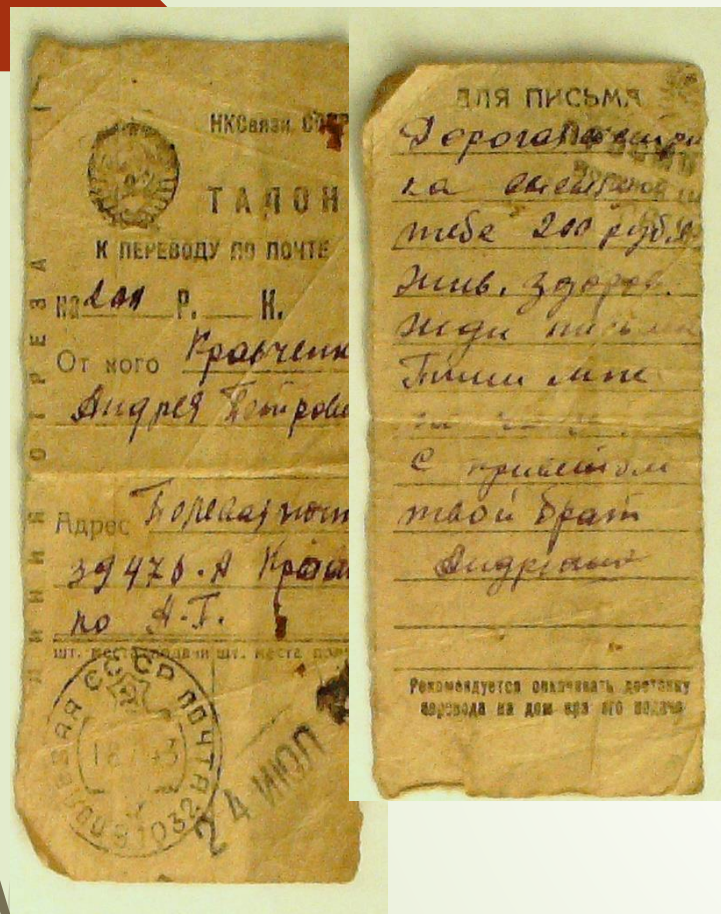 НКСвязи СССР
ТАЛОН
К ПЕРЕВОДУ ПО ПОЧТЕ
на 200 Р. К.
От кого Кравченк
Андрея Петрови
Адрес Полевая почт
39470-А Кравч
по А.П.
шт. места подачи шт. места
ЛИНИЯ ОТРЕЗА
ПОЛЕВАЯ ПОЧТА
СССР
18 7 43
81032
24 ИЮЛ
ДЛЯ ПИСЬМА
Дорогая сестри
ка высылаю
тебе 200 рубл
Жив. здоров.
Жди письма
Пиши мне
с приветом
твой брат
Андрей
Рекомендуется оплачивать доставку
перевода на дом при его подаче